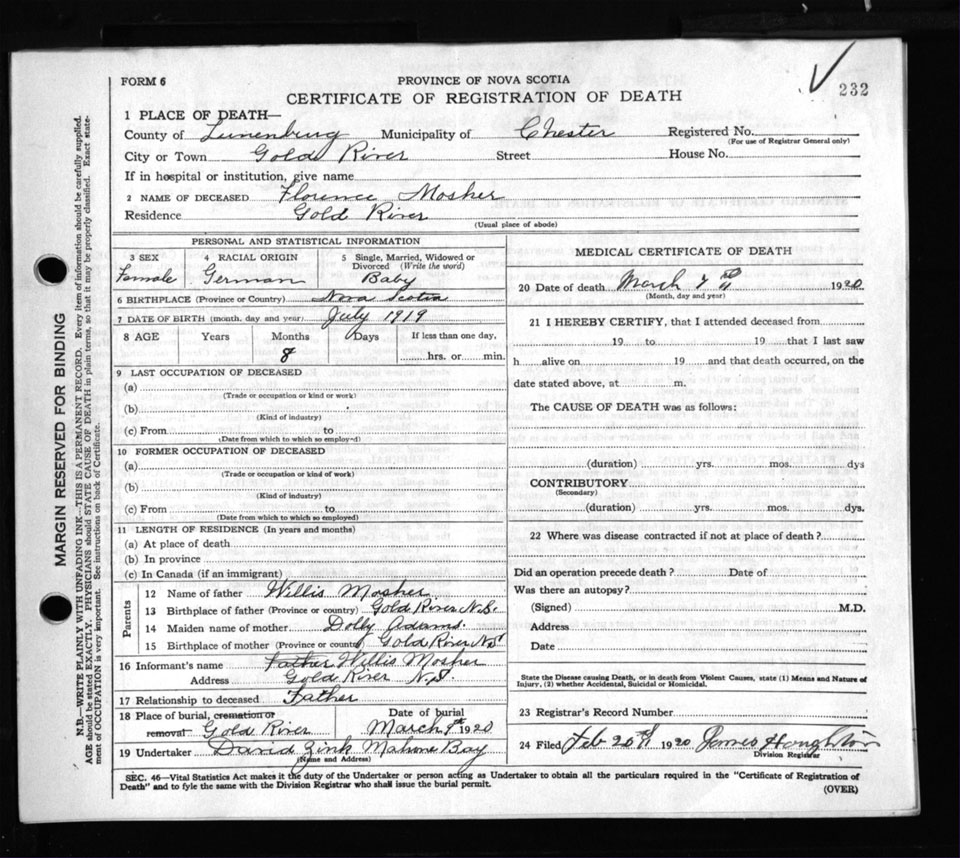 FORM 6
PROVINCE OF NOVA SCOTIA
232
CERTIFICATE OF REGISTRATION OF DEATH
1 PLACE OF DEATH—
County of Lunenburg Municipality of Chester Registered No.
(For use of Registrar General only)
City or Town Gold River Street House No.
If in hospital or institution, give name
2 NAME OF DECEASED Florence Mosher
Residence Gold River
(Usual place of abode)
PERSONAL AND STATISTICAL INFORMATION
3 SEX 4 RACIAL ORIGIN 5 Single, Married, Widowed or Divorced (Write the word)
Female German Baby
6 BIRTHPLACE (Province or Country) Nova Scotia
7 DATE OF BIRTH (month, day and year) July 1919
8 AGE Years Months Days If less than one day,
8 hrs. or min.
9 LAST OCCUPATION OF DECEASED
(a)
(Trade or occupation or kind or work)
(b)
(Kind of industry)
(c) From to
(Date from which to which so employed)
10 FORMER OCCUPATION OF DECEASED
(a)
(Trade or occupation or kind of work)
(b)
(Kind of industry)
(c) From to
(Date from which to which so employed)
11 LENGTH OF RESIDENCE (In years and months)
(a) At place of death
(b) In province
(c) In Canada (if an immigrant)
Parents
12 Name of father Willis Mosher
13 Birthplace of father (Province or country) Gold River N.S.
14 Maiden name of mother Dolly Adams.
15 Birthplace of mother (Province or country) Gold River N.S
16 Informant's name Father Willis Mosher
Address Gold River N.S.
17 Relationship to deceased Father
18 Place of burial, cremation or removal Gold River
Date of burial
March 9th 1920
19 Undertaker David Zink Mahone Bay
(Name and Address)
MEDICAL CERTIFICATE OF DEATH
20 Date of death March 7th 1920
(Month, day and year)
21 I HEREBY CERTIFY, that I attended deceased from
19 to 19 that I last saw
h alive on 19 and that death occurred, on the
date stated above, at m.
The CAUSE OF DEATH was as follows:
(duration) yrs. mos. dys
CONTRIBUTORY
(Secondary)
(duration) yrs. mos. dys.
22 Where was disease contracted if not at place of death?
Did an operation precede death? Date of
Was there an autopsy?
(Signed) M.D.
Address
Date
State the Disease causing Death, or in death from Violent Causes, state (1) Means and Nature of
Injury, (2) whether Accidental, Suicidal or Homicidal.
23 Registrar's Record Number
24 Filed Feb 20th 1920 James Houghton
Division Registrar
SEC. 46—Vital Statistics Act makes it the duty of the Undertaker or person acting as Undertaker to obtain all the particulars required in the "Certificate of Registration of
Death" and to fyle the same with the Division Registrar who shall issue the burial permit.
(OVER)
MARGIN RESERVED FOR BINDING
N.B.—WRITE PLAINLY WITH UNFADING INK—THIS IS A PERMANENT RECORD. Every item of information should be carefully supplied.
AGE should be stated EXACTLY. PHYSICIANS should STATE CAUSE OF DEATH in plain terms, so that it may be properly classified. Exact state-
ment of OCCUPATION is very important. See instructions on back of Certificate.